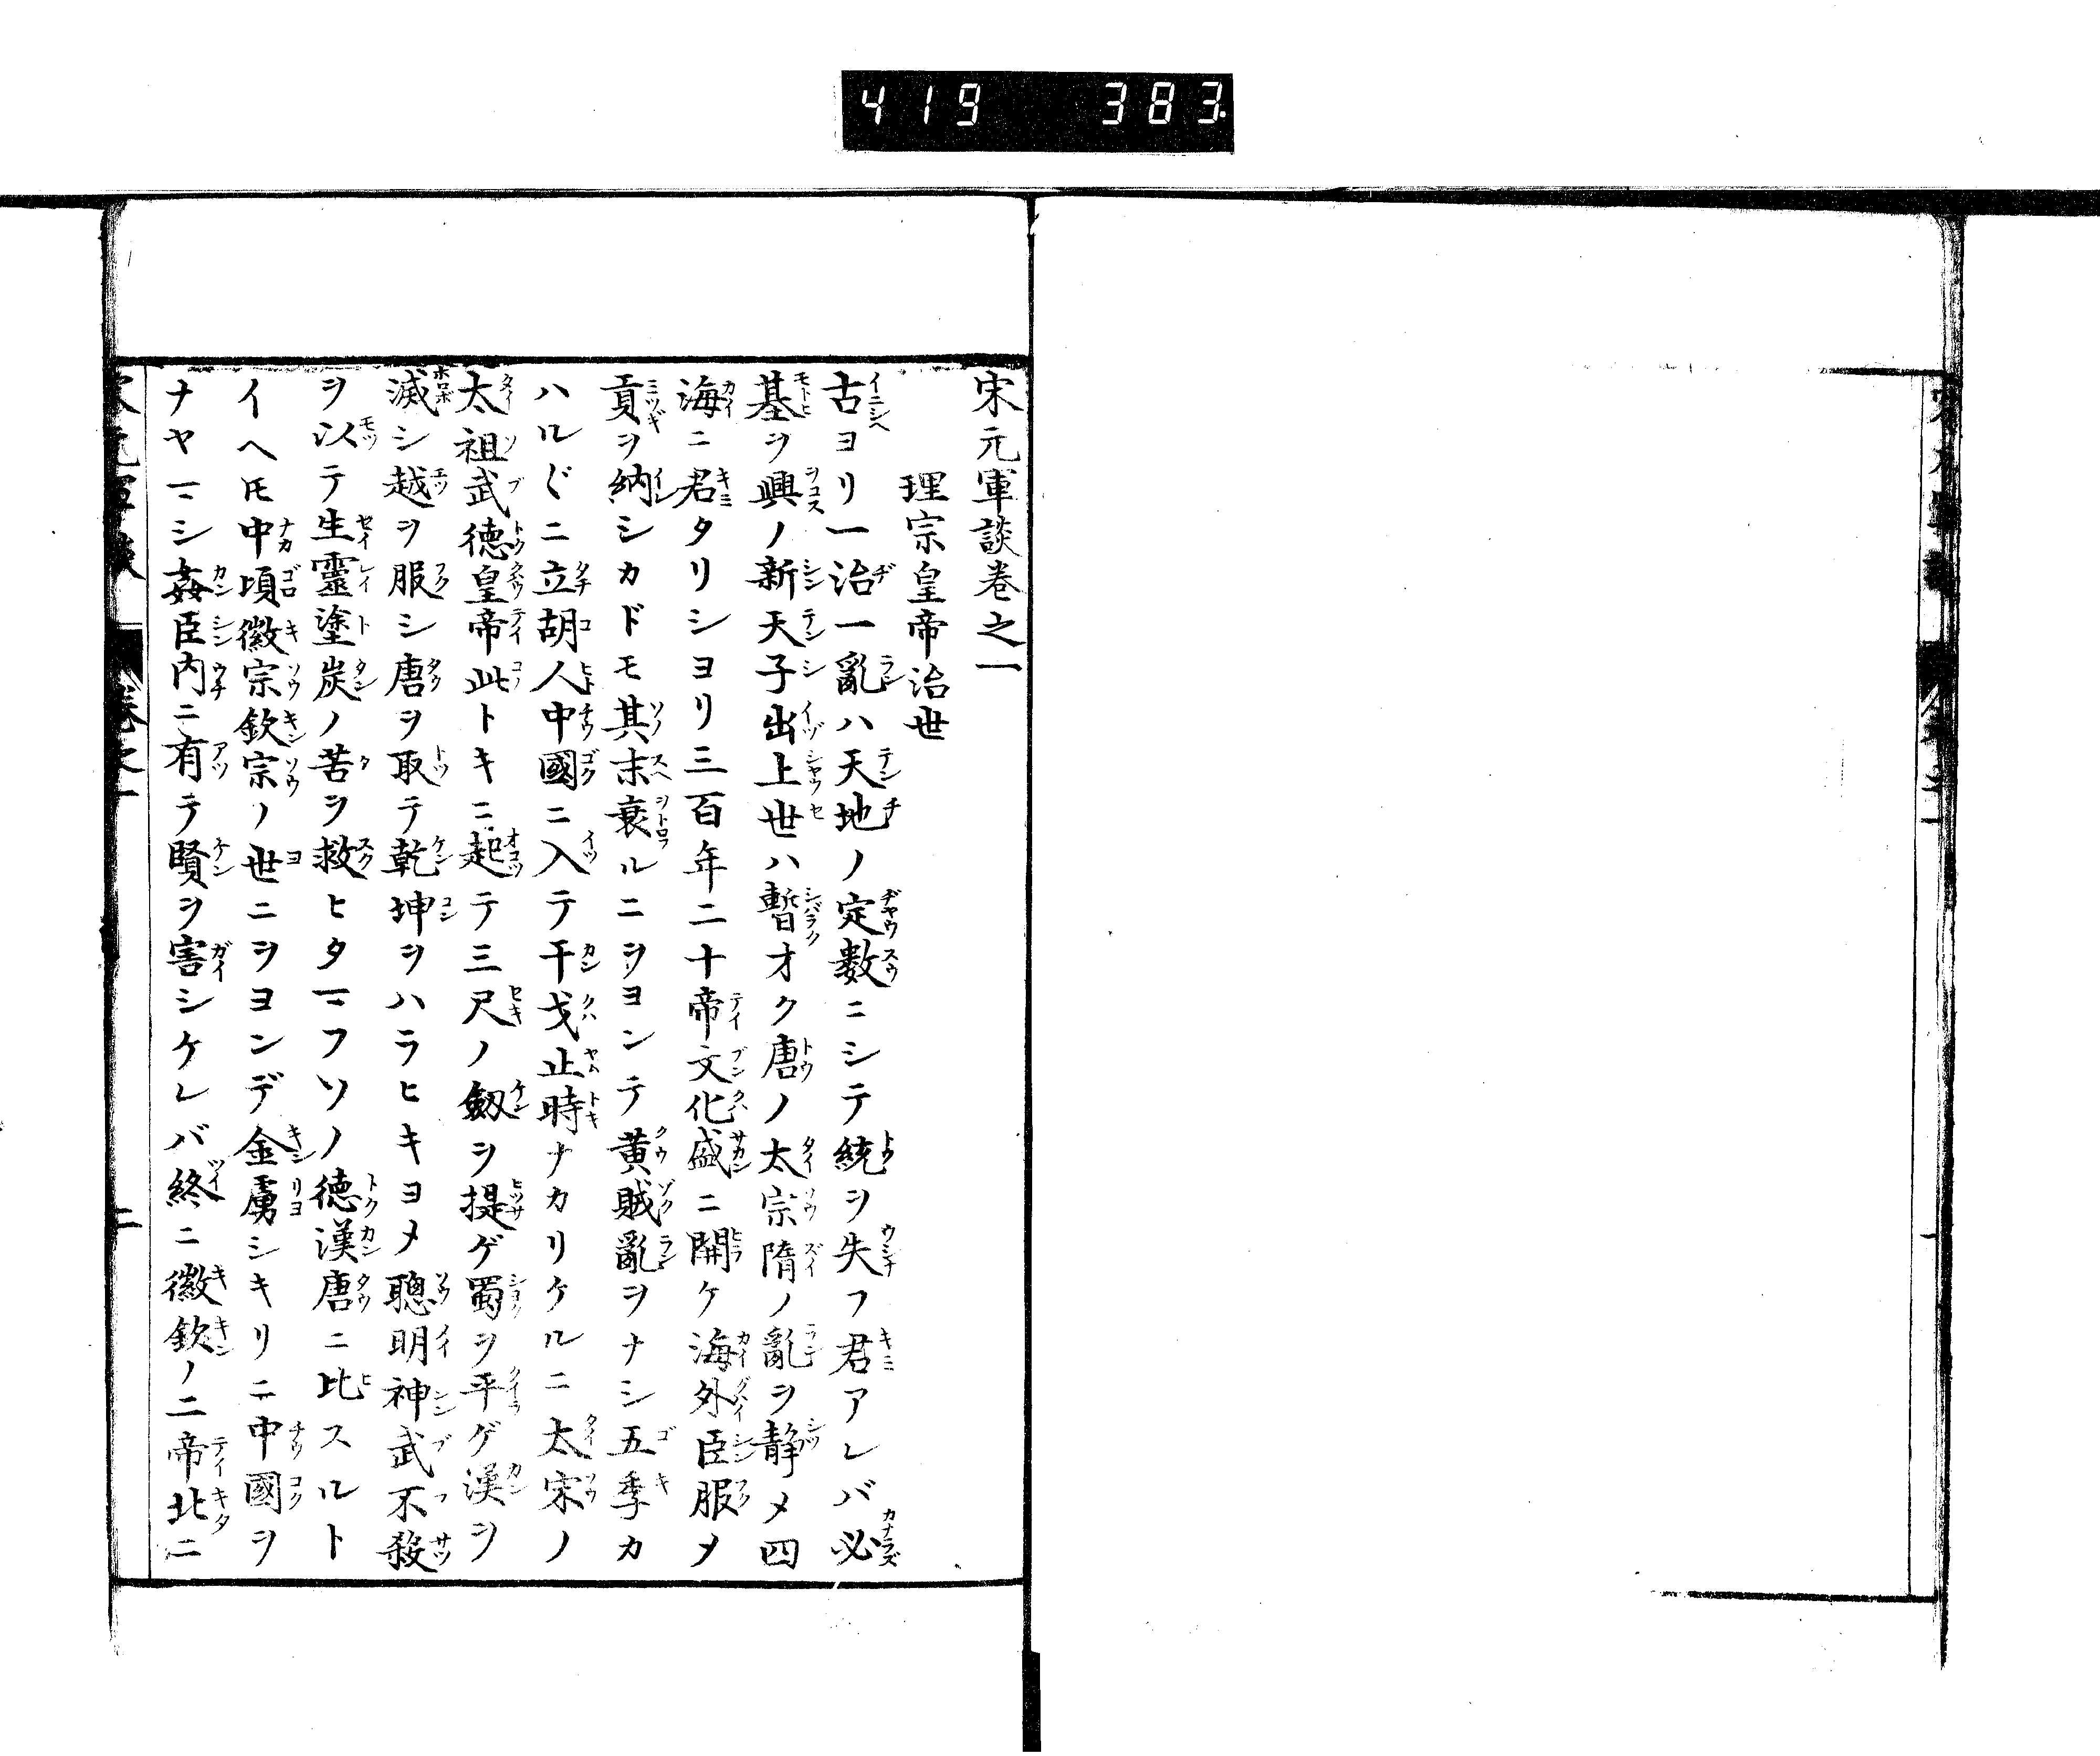 419 383.
宋元軍談卷之一
理宗皇帝治世
古ヨリ一治一亂ハ天地ノ定數ニシテ統ヲ失フ君アレバ必
基ヲ興ノ新天子出上世ハ暫オク唐ノ太宗隋ノ亂ヲ靜メ四
海ニ君タリシヨリ三百年二十帝文化盛ニ開ケ海外臣服メ
貢ヲ納シカドモ其末衰ルニヲヨンテ黄賊亂ヲナシ五季カ
ハル〴〵ニ立胡人中國ニ入テ干戈止時ナカリケルニ太宋ノ
太祖武德皇帝此トキニ起テ三尺ノ劔ヲ提ゲ蜀ヲ平ゲ漢ヲ
滅シ越ヲ服シ唐ヲ取テ乾坤ヲハラヒキヨメ聰明神武不殺
ヲ以テ生靈塗炭ノ苦ヲ救ヒタマフソノ德漢唐ニ比スルト
イヘ𪜈中頃徽宗欽宗ノ世ニヲヨンデ金虜シキリニ中國ヲ
ナヤマシ姦臣内ニ有テ賢ヲ害シケレバ終ニ徽欽ノ二帝北ニ
宋元軍談 卷之一 二